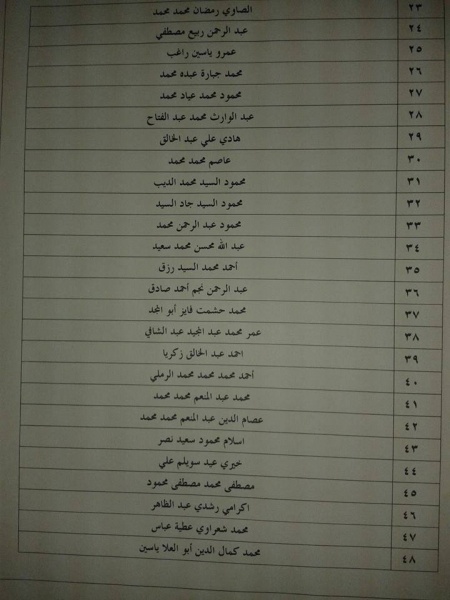 ٢٣ الصاوي رمضان محمد محمد
٢٤ عبد الرحمن ربيع مصطفي
٢٥ عمرو ياسين راغب
٢٦ محمد جبارة عبده محمد
٢٧ محمود محمد عياد محمد
٢٨ عبد الوارث محمد عبد الفتاح
٢٩ هادي علي عبد الخالق
٣٠ عاصم محمد محمد
٣١ محمود السيد محمد الديب
٣٢ محمود السيد جاد السيد
٣٣ محمود عبد الرحمن محمد
٣٤ عبد الله محسن محمد سعيد
٣٥ أحمد محمد السيد رزق
٣٦ عبد الرحمن نجم أحمد صادق
٣٧ محمد حشمت فايز أبو المجد
٣٨ عمر محمد عبد المجيد عبد الشافي
٣٩ احمد عبد الخالق زكريا
٤٠ أحمد محمد محمد محمد الرملي
٤١ محمد عبد المنعم محمد محمد
٤٢ عصام الدين عبد المنعم محمد محمد
٤٣ اسلام محمود سعيد نصر
٤٤ خيري عيد سويلم علي
٤٥ مصطفى محمد مصطفى محمود
٤٦ اكرامي رشدي عبد الظاهر
٤٧ محمد شعراوي عطية عباس
٤٨ محمد كمال الدين أبو العلا ياسين